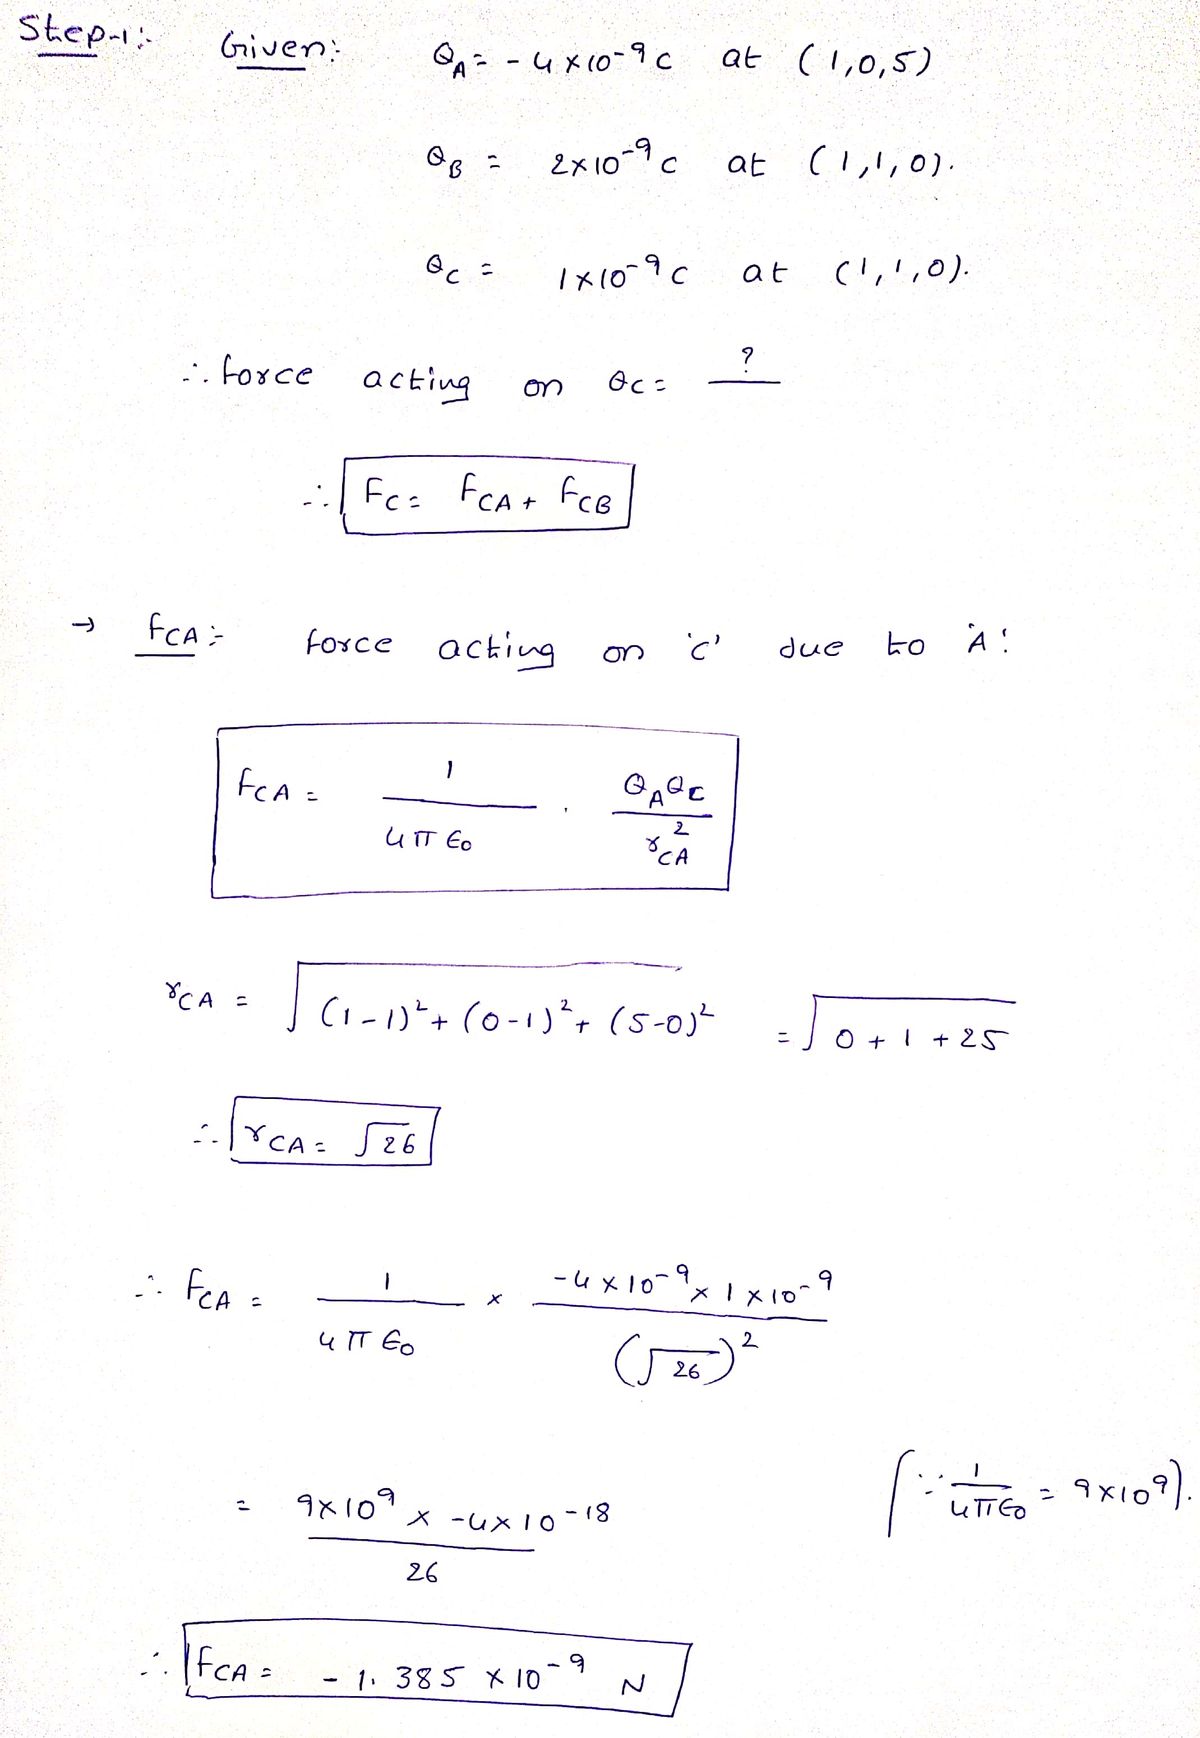 Step-1:- Given:- Q_A = -4×10⁻⁹ C at (1,0,5)
Q_B = 2×10⁻⁹ C at (1,1,0).
Q_C = 1×10⁻⁹ C at (1,1,0).
∴ force acting on Q_C = ?
∴ F_C = F_CA + F_CB
→ F_CA :- force acting on 'C' due to 'A'.
F_CA = 1/(4π∈₀) · Q_A Q_C/r_CA²
r_CA = √((1-1)² + (0-1)² + (5-0)²) = √(0+1+25)
∴ r_CA = √26
∴ F_CA = 1/(4π∈₀) × (-4×10⁻⁹ × 1×10⁻⁹)/(√26)²
= (9×10⁹ × -4×10⁻¹⁸)/26 [∵ 1/(4π∈₀) = 9×10⁹).
∴ F_CA = -1.385 ×10⁻⁹ N